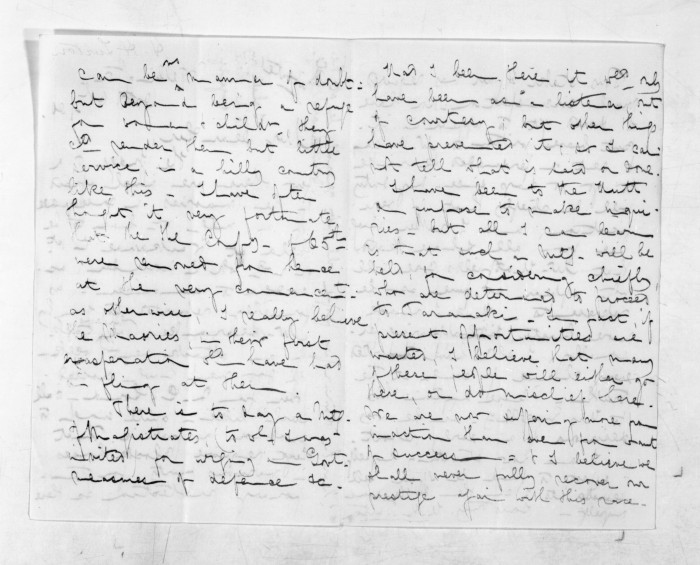 can be no manner of doubt -
but beyond being a refuge
for women & children they
cd render them but little
service, in a hilly country
like this I have often
thought it very fortunate
that the two Comps. of 65th
were removed from hence
at the very commencemt.
as otherwise, I really believe
the Maories, in their first
exasperation wd have had
a fling at them
There is to day a Mtg
of Magistrates, (to wh. I was
invited) for urging on Govt.
measures of defence &c.
Had I been there it wd only
have been as a listener out
of courtesy, but other things
have prevented it, & I can-
not tell what is said or done.
I have been to the
on purpose to make inqui-
ries - but all I can learn
is that such a Mtg. will be
held for considering chiefly
who are determined to proceed
to Taranaki - In part, if
present opportunities are
wasted I believe that many
of these people will either go
there, or do mischief here.
We are now suffering more from
inaction than even from want
of success - & I believe we
shall never fully recover our
prestige again with this race.